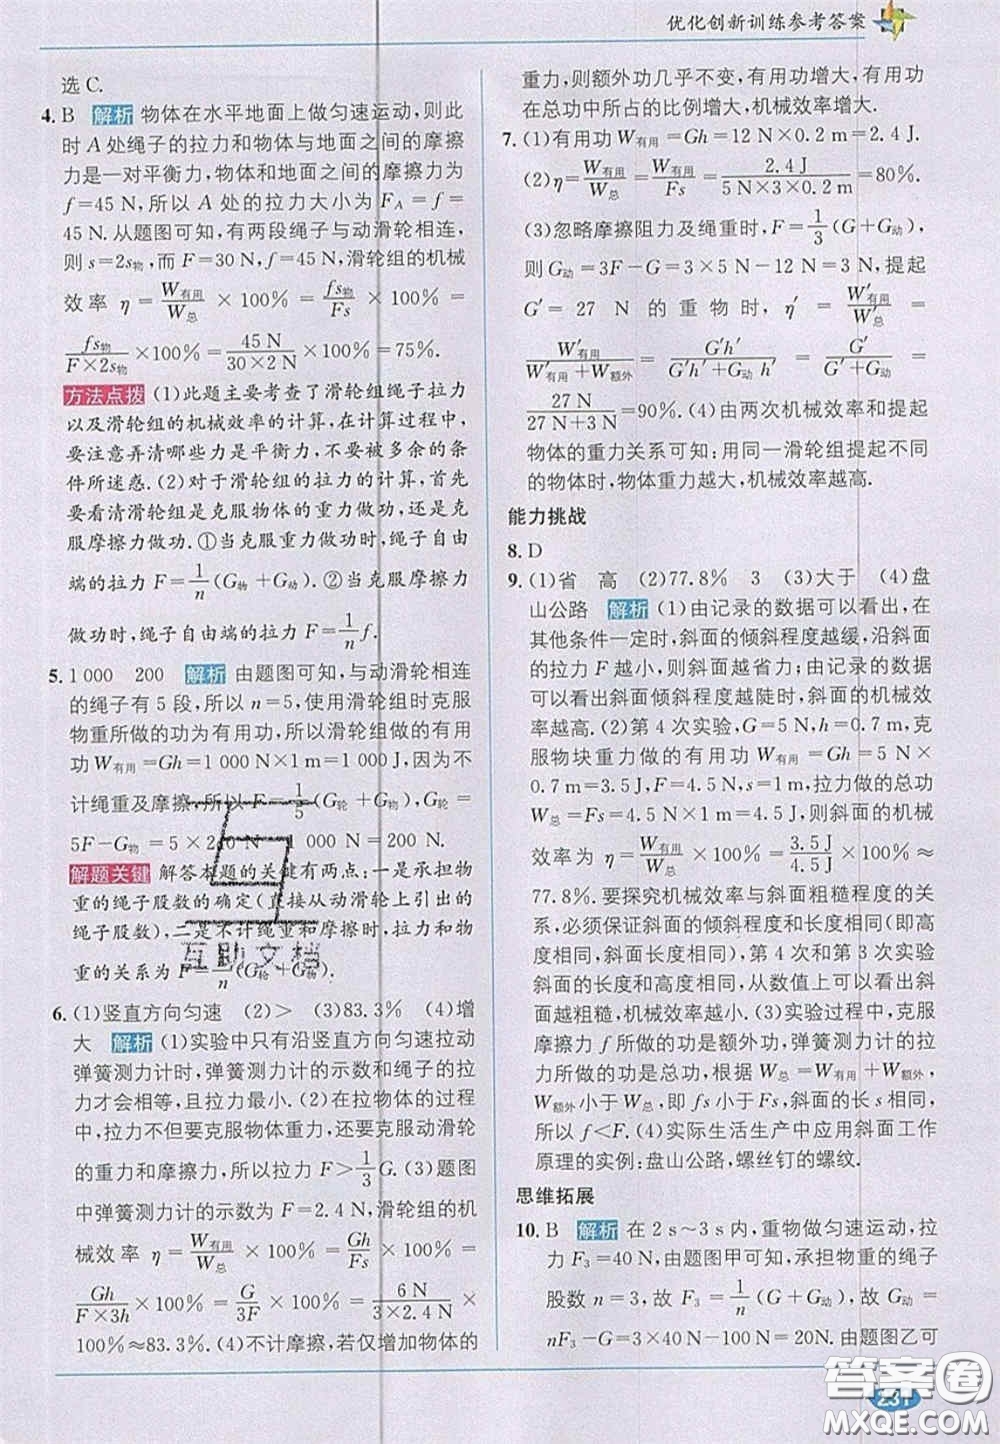 优化创新训练参考答案
选C.
4. B 解析 物体在水平地面上做匀速运动,则此
时A处绳子的拉力和物体与地面之间的摩擦
力是一对平衡力,物体和地面之间的摩擦力为
f=45 N,所以A处的拉力大小为F_A=f=
45 N.从题图可知,有两段绳子与动滑轮相连,
则s=2s物,而F=30 N,f=45 N,滑轮组的机械
效率 η=W有用/W总×100%=fs物/Fs×100%=
fs物/(F×2s物)×100%=45 N/(30×2 N)×100%=75%.
方法点拨 (1)此题主要考查了滑轮组绳子拉力
以及滑轮组的机械效率的计算,在计算过程中,
要注意弄清哪些力是有用的,不要被多余的条
件所迷惑.(2)对于滑轮组的拉力的计算,首先
要看清滑轮组是克服物体的重力做功,还是克
服摩擦力做功.①当克服重力做功时,绳子自由
端的拉力F=1/n(G物+G动).②当克服摩擦力
做功时,绳子自由端的拉力F=1/n f.
5. 1 000 200 解析 由题图可知,与动滑轮相连
的绳子有5段,所以n=5,使用滑轮组时克服
物重所做的功为有用功,所以滑轮组做的有用
功W有用=Gh=1 000 N×1 m=1 000 J,因为不
计绳重及摩擦,所以F=1/5(G轮+G物),G轮=
5F-G物=5×240 N-1 000 N=200 N.
解题关键 解答本题的关键有两点:一是承担物
重的绳子股数的确定(直接从动滑轮上引出的
绳子股数),二是不计绳重和摩擦时,拉力和物
重的关系为F=1/n(G轮+G物).
互助文档
6. (1)竖直方向匀速 (2)> (3)83.3% (4)增
大 解析 (1)实验中只有沿竖直方向匀速拉动
弹簧测力计时,弹簧测力计的示数和绳子的拉
力才会相等,且拉力最小.(2)在拉物体的过程
中,拉力不但要克服物体重力,还要克服动滑轮
的重力和摩擦力,所以拉力F>1/3G.(3)题图
中弹簧测力计的示数为F=2.4 N,滑轮组的机
械效率 η=W有用/W总×100%=Gh/Fs×100%=
Gh/(F×3h)×100%=G/3F×100%=6 N/(3×2.4 N)×
100%≈83.3%.(4)不计摩擦,若仅增加物体的
重力,则额外功几乎不变,有用功增大,有用功
在总功中所占的比例增大,机械效率增大.
7. (1)有用功W有用=Gh=12 N×0.2 m=2.4 J.
(2)η=W有用/W总=W有用/Fs=2.4 J/(5 N×3×0.2 m)=80%.
(3)忽略摩擦阻力及绳重时,F=1/3(G+G动),
则G动=3F-G=3×5 N-12 N=3 N,提起
G′=27 N的重物时,η′=W′有用/W′总=
W′有用/(W′有用+W额外)=G′h′/(G′h′+G动h′)=G′/(G′+G动)=
27 N/(27 N+3 N)=90%.(4)由两次机械效率和提起
物体的重力关系可知:用同一滑轮组提起不同
的物体时,物体重力越大,机械效率越高.
能力挑战
8. D
9. (1)省 高 (2)77.8% 3 (3)大于 (4)盘
山公路 解析 (1)由记录的数据可以看出,在
其他条件一定时,斜面的倾斜程度越缓,沿斜面
的拉力F越小,则斜面越省力;由记录的数据
可以看出斜面倾斜程度越陡时,斜面的机械效
率越高.(2)第4次实验,G=5 N,h=0.7 m,克
服物块重力做的有用功W有用=Gh=5 N×
0.7 m=3.5 J,s=1 m,拉力做的总功
W总=Fs=4.5 N×1 m=4.5 J,则斜面的机械
效率为 η=W有用/W总×100%=3.5 J/4.5 J×100%≈
77.8%.要探究机械效率与斜面粗糙程度的关
系,必须保证斜面的倾斜程度和长度相同(即高
度相同,斜面长度相同),第4次和第3次实验
斜面的高度和长度都相同,从实验数据可知,斜
面的粗糙程度不同.(3)实验过程中,克服
摩擦力f所做的功是额外功,使用斜面时拉力
F所做的功是总功,根据W总=W有用+W额外,
W额外小于W总,即fs小于Fs,斜面的长s一定,
所以f<F.(4)实际生活生产中应用斜面工作
原理的实例:盘山公路,螺丝钉的螺纹.
思维拓展
10. B 解析 在2 s~3 s内,重物做匀速运动,拉
力F₃=40 N,由题图甲可知,承担物重的绳子
股数n=3,故F₃=1/n(G+G动),故G动=
nF₃-G=3×40 N-100 N=20N.由题图乙可
231
答案圈
MXQE.COM